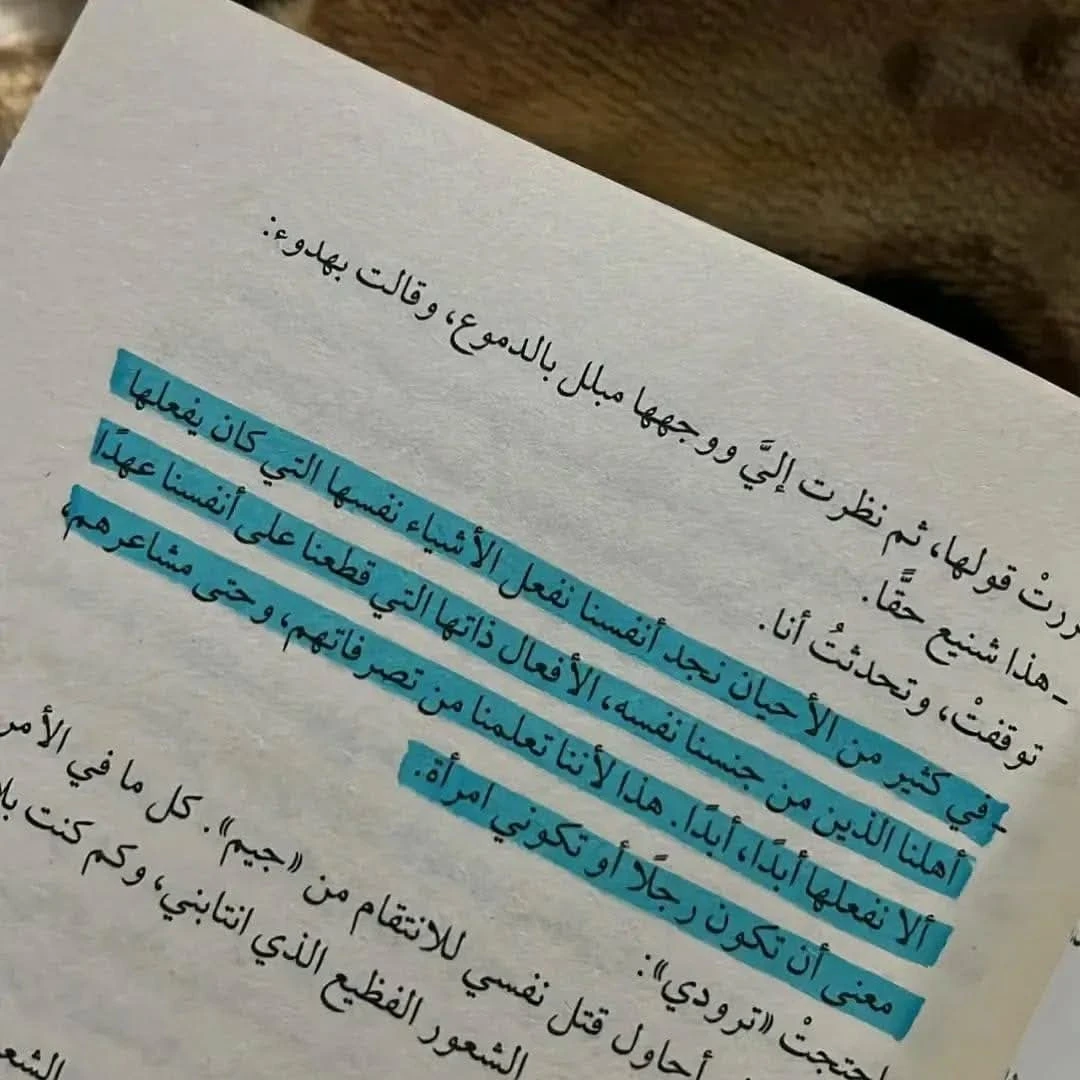 قولها، ثم نظرت إليَّ ووجهها مبلل بالدموع، وقالت بهدوء:
ـ هذا شنيع حقًّا.
توقفتْ، وتحدثتُ أنا.
ـ في كثير من الأحيان نجد أنفسنا نفعل الأشياء نفسها التي كان يفعلها
أهلنا الذين من جنسنا نفسه، الأفعال ذاتها التي قطعنا على أنفسنا عهدًا
ألا نفعلها أبدًا، أبدًا. هذا لأننا تعلمنا من تصرفاتهم، وحتى مشاعرهم،
معنى أن تكون رجلًا أو تكوني امرأة.
احتجتْ «ترودي»:
أحاول قتل نفسي للانتقام من «جيم». كل ما في الأمر
الشعور الفظيع الذي انتابني، وكم كنت